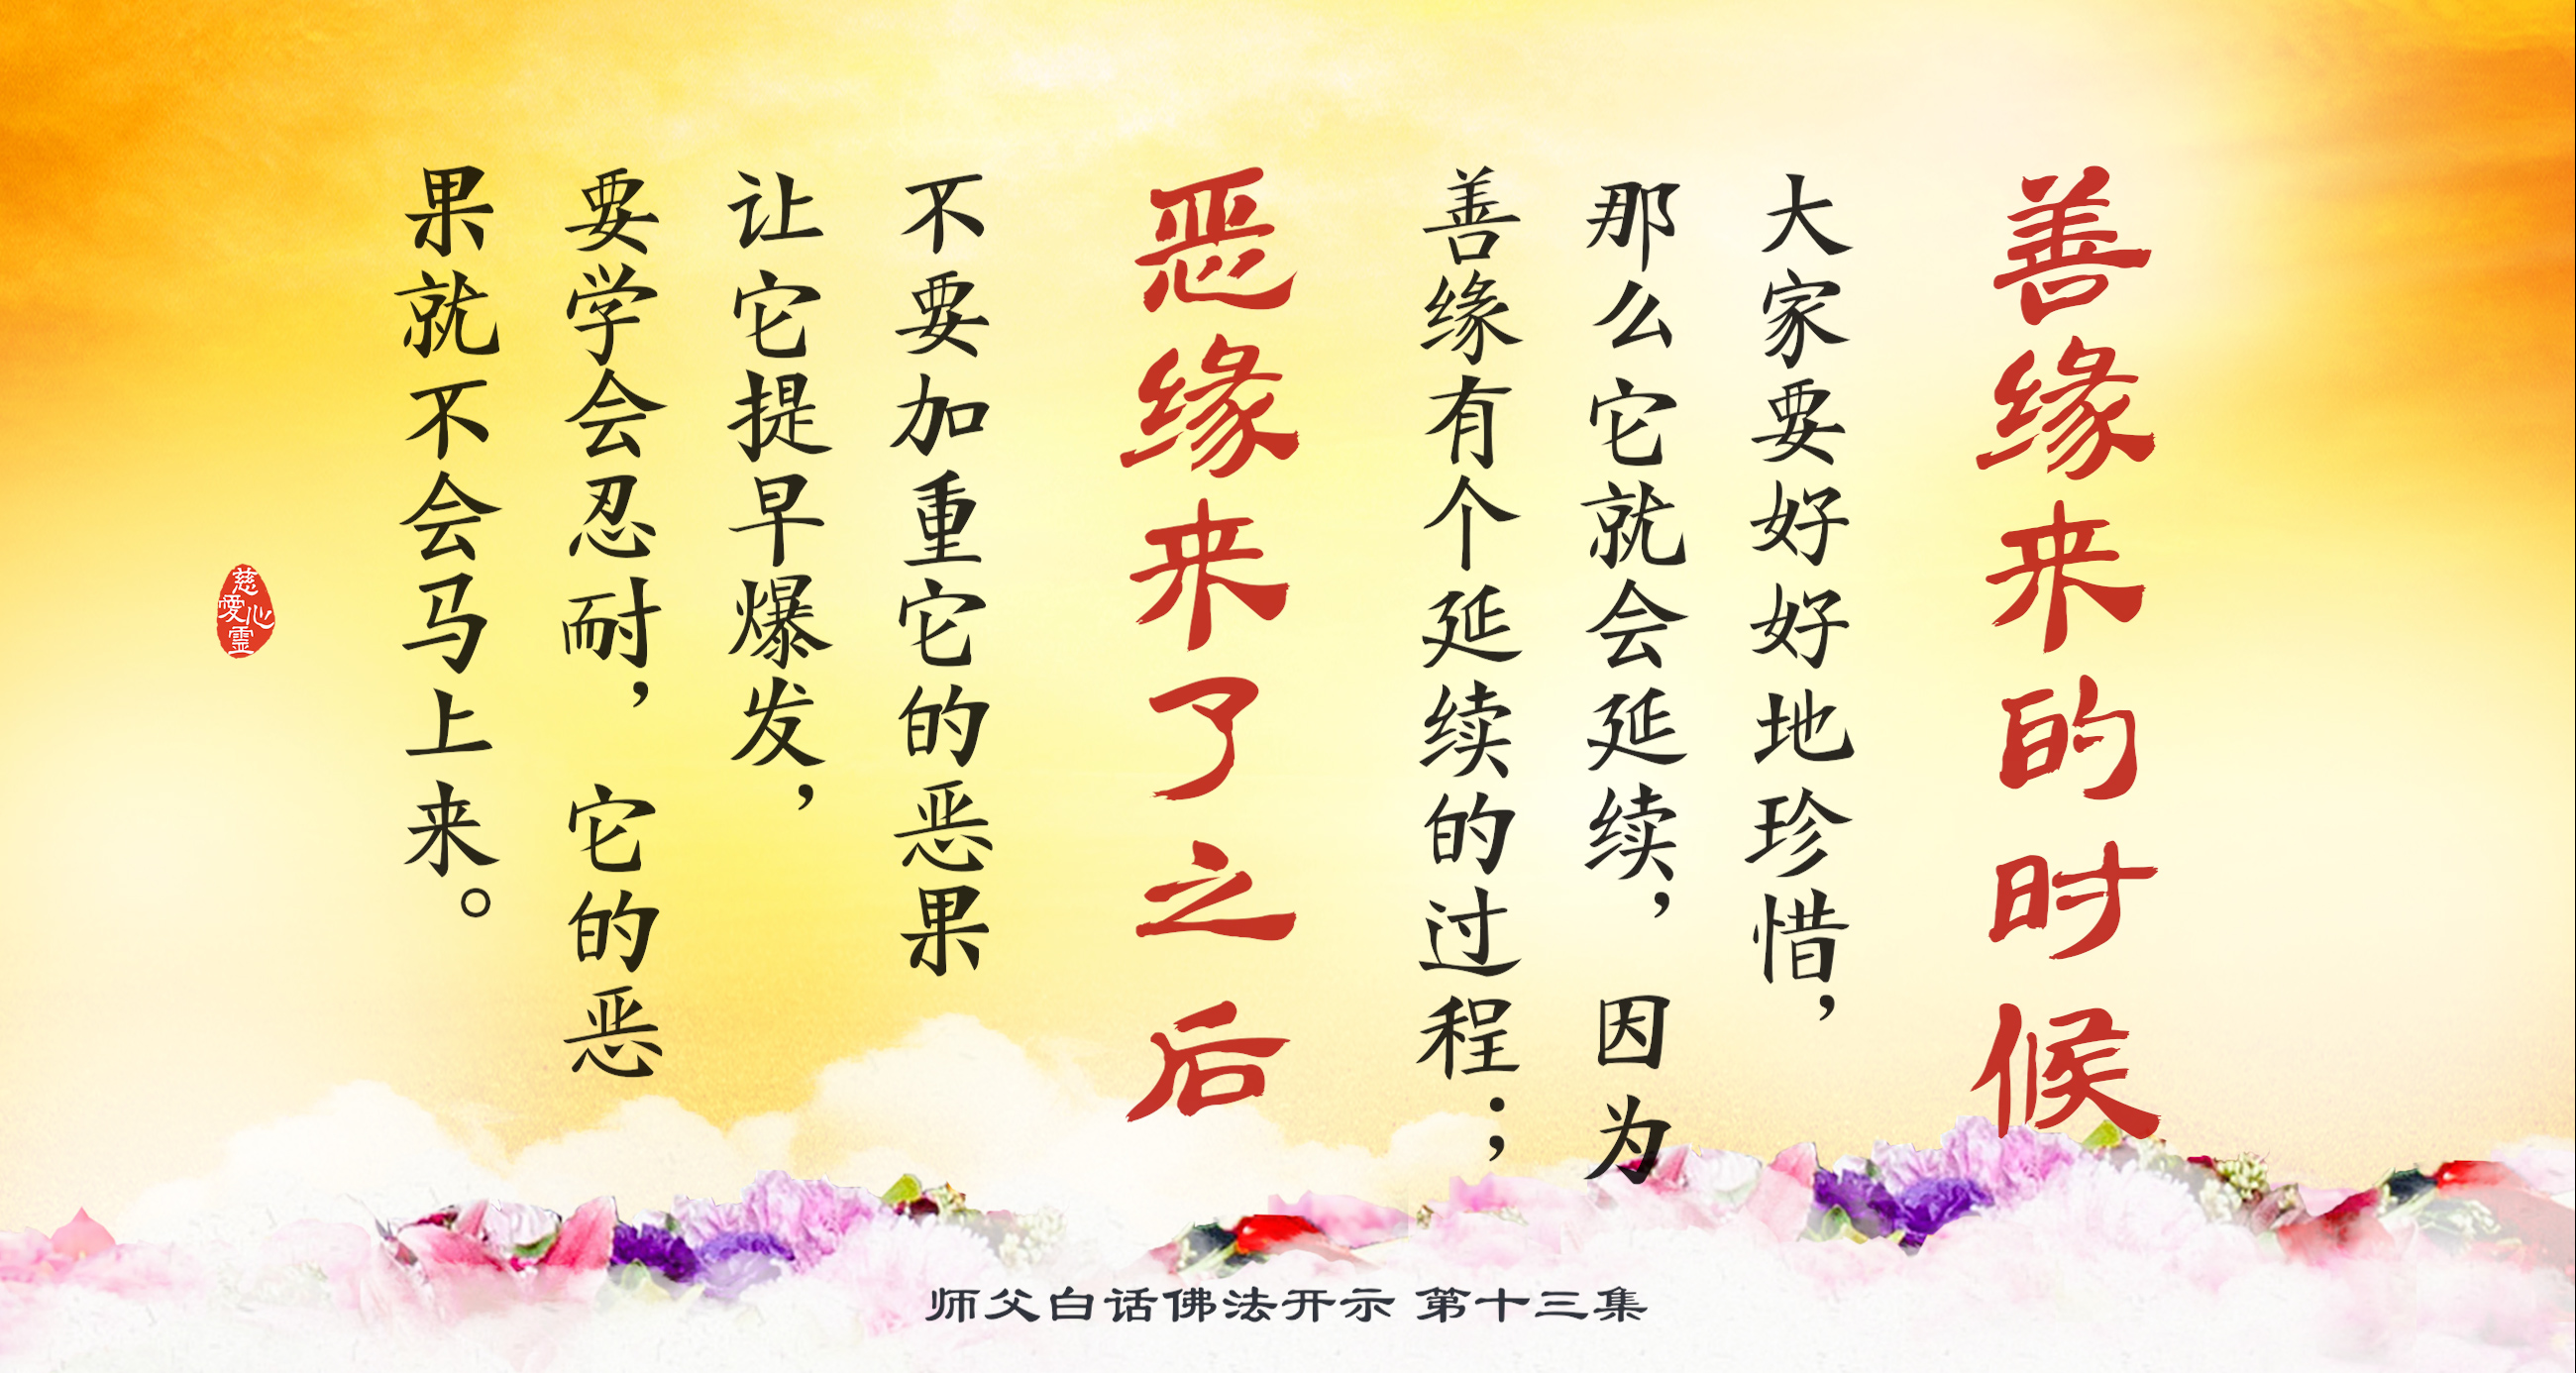 善缘来的时候
大家要好好地珍惜，
那么它就会延续，因为
善缘有个延续的过程；
恶缘来了之后
不要加重它的恶果
让它提早爆发，
要学会忍耐，它的恶
果就不会马上来。
慈心愛靈
师父白话佛法开示 第十三集